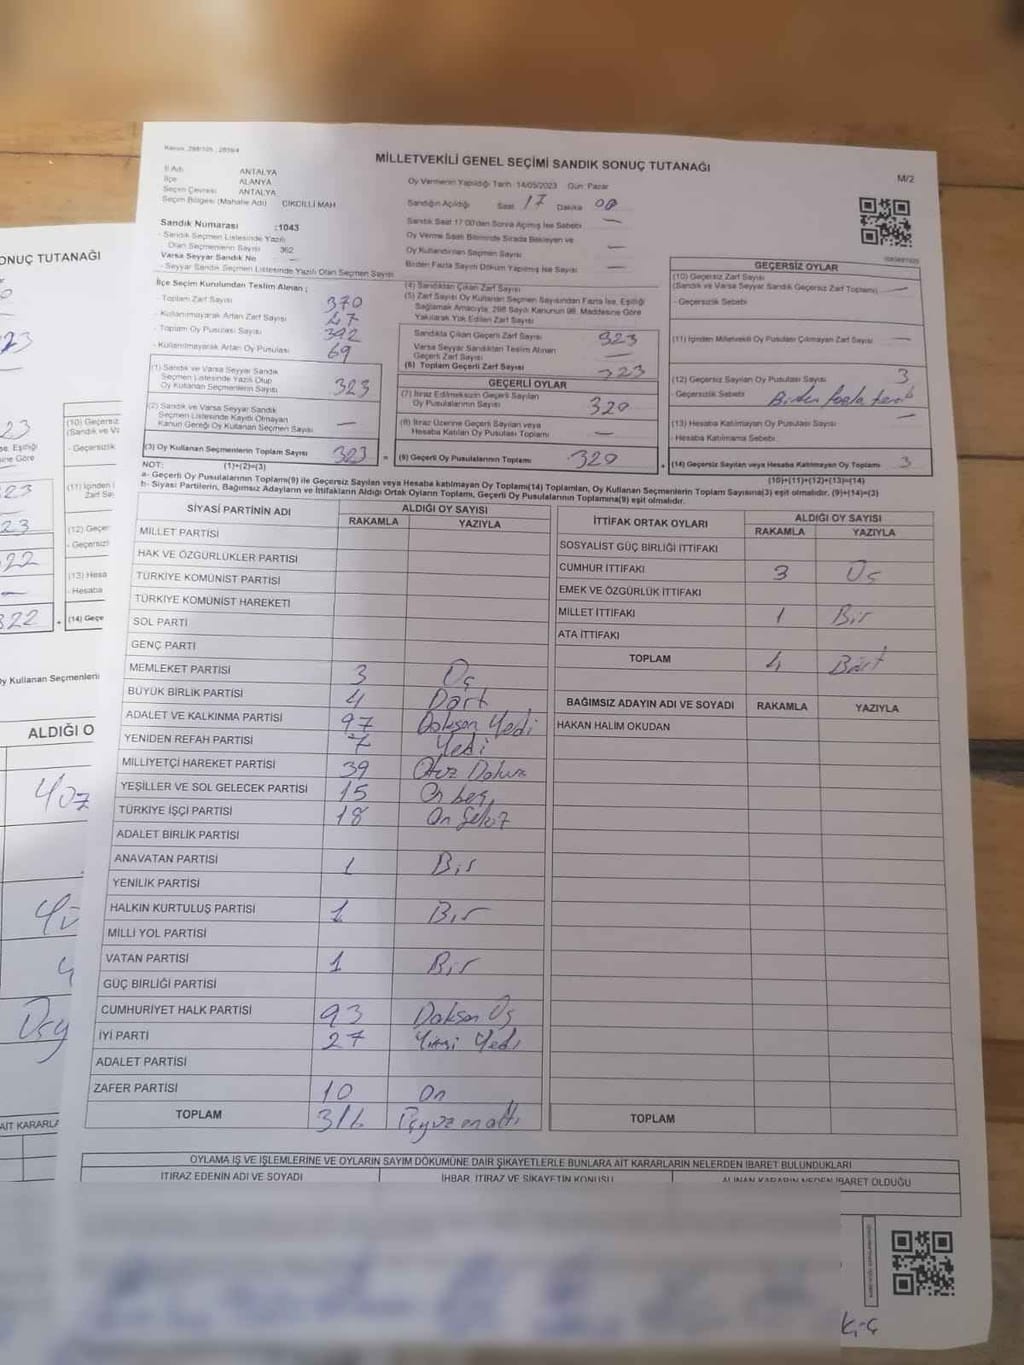 Kanun :298/105 ; 2839/4
MİLLETVEKİLİ GENEL SEÇİMİ SANDIK SONUÇ TUTANAĞI
M/2
İl Adı ANTALYA
İlçe ALANYA
Seçim Çevresi ANTALYA
Seçim Bölgesi (Mahalle Adı) CİKCİLLİ MAH
Sandık Numarası :1043
- Sandık Seçmen Listesinde Yazılı
Olan Seçmenlerin Sayısı 362
Varsa Seyyar Sandık No
- Seyyar Sandık Seçmen Listesinde Yazılı Olan Seçmen Sayısı
Oy Vermenin Yapıldığı Tarih :14/05/2023 Gün: Pazar
Sandığın Açıldığı Saat 17 Dakika 00
Sandık Saat 17:00'den Sonra Açılmış İse Sebebi —
Oy Verme Saati Bitiminde Sırada Bekleyen ve
Oy Kullandırılan Seçmen Sayısı —
Birden Fazla Sayım Döküm Yapılmış İse Sayısı —
İlçe Seçim Kurulundan Teslim Alınan ;
- Toplam Zarf Sayısı 370
- Kullanılmayarak Artan Zarf Sayısı 47
- Toplam Oy Pusulası Sayısı 392
- Kullanılmayarak Artan Oy Pusulası 69
(1) Sandık ve Varsa Seyyar Sandık
Seçmen Listesinde Yazılı Olup
Oy Kullanan Seçmenlerin Sayısı 323
(2) Sandık ve Varsa Seyyar Sandık
Seçmen Listesinde Kayıtlı Olmayan
Kanun Gereği Oy Kullanan Seçmen Sayısı —
(3) Oy Kullanan Seçmenlerin Toplam Sayısı 323
(1)+(2)=(3)
(4) Sandıktan Çıkan Zarf Sayısı
(5) Zarf Sayısı Oy Kullanan Seçmen Sayısından Fazla İse, Eşitliği
Sağlamak Amacıyla; 298 Sayılı Kanunun 98. Maddesine Göre
Yakılarak Yok Edilen Zarf Sayısı
Sandıkta Çıkan Geçerli Zarf Sayısı 323
Varsa Seyyar Sandıktan Teslim Alınan
Geçerli Zarf Sayısı —
(6) Toplam Geçerli Zarf Sayısı 323
GEÇERLİ OYLAR
(7) İtiraz Edilmeksizin Geçerli Sayılan
Oy Pusulalarının Sayısı 320
(8) İtiraz Üzerine Geçerli Sayılan veya
Hesaba Katılan Oy Pusulası Toplamı —
= (9) Geçerli Oy Pusulalarının Toplamı 320
GEÇERSİZ OYLAR
(10) Geçersiz Zarf Sayısı
(Sandık ve Varsa Seyyar Sandık Geçersiz Zarf Toplamı) —
- Geçersizlik Sebebi
(11) İçinden Milletvekili Oy Pusulası Çıkmayan Zarf Sayısı —
(12) Geçersiz Sayılan Oy Pusulası Sayısı 3
- Geçersizlik Sebebi Birden fazla
(13) Hesaba Katılmayan Oy Pusulası Sayısı —
- Hesaba Katılmama Sebebi
+ (14) Geçersiz Sayılan veya Hesaba Katılmayan Oy Toplamı 3
(10)+(11)+(12)+(13)=(14)
NOT:
a- Geçerli Oy Pusulalarının Toplamı(9) ile Geçersiz Sayılan veya Hesaba Katılmayan Oy Toplamı(14) Toplamları, Oy Kullanan Seçmenlerin Toplam Sayısına(3) eşit olmalıdır. (9)+(14)=(3)
b- Siyasi Partilerin, Bağımsız Adayların ve İttifakların Aldığı Ortak Oyların Toplamı, Geçerli Oy Pusulalarının Toplamına(9) eşit olmalıdır.
SİYASİ PARTİNİN ADI ALDIĞI OY SAYISI
RAKAMLA YAZIYLA
MİLLET PARTİSİ
HAK VE ÖZGÜRLÜKLER PARTİSİ
TÜRKİYE KOMÜNİST PARTİSİ
TÜRKİYE KOMÜNİST HAREKETİ
SOL PARTİ
GENÇ PARTİ
MEMLEKET PARTİSİ 3 Üç
BÜYÜK BİRLİK PARTİSİ 4 Dört
ADALET VE KALKINMA PARTİSİ 97 Doksan Yedi
YENİDEN REFAH PARTİSİ 7 Yedi
MİLLİYETÇİ HAREKET PARTİSİ 39 Otuz Dokuz
YEŞİLLER VE SOL GELECEK PARTİSİ 15 On beş
TÜRKİYE İŞÇİ PARTİSİ 18 On Sekiz
ADALET BİRLİK PARTİSİ
ANAVATAN PARTİSİ 1 Bir
YENİLİK PARTİSİ
HALKIN KURTULUŞ PARTİSİ 1 Bir
MİLLİ YOL PARTİSİ
VATAN PARTİSİ 1 Bir
GÜÇ BİRLİĞİ PARTİSİ
CUMHURİYET HALK PARTİSİ 93 Doksan Üç
İYİ PARTİ 27 Yirmi Yedi
ADALET PARTİSİ
ZAFER PARTİSİ 10 On
TOPLAM 316 Üçyüz on altı
İTTİFAK ORTAK OYLARI ALDIĞI OY SAYISI
RAKAMLA YAZIYLA
SOSYALİST GÜÇ BİRLİĞİ İTTİFAKI
CUMHUR İTTİFAKI 3 Üç
EMEK VE ÖZGÜRLÜK İTTİFAKI
MİLLET İTTİFAKI 1 Bir
ATA İTTİFAKI
TOPLAM 4 Dört
BAĞIMSIZ ADAYIN ADI VE SOYADI RAKAMLA YAZIYLA
HAKAN HALİM OKUDAN
TOPLAM
OYLAMA İŞ VE İŞLEMLERİNE VE OYLARIN SAYIM DÖKÜMÜNE DAİR ŞİKAYETLERLE BUNLARA AİT KARARLARIN NELERDEN İBARET BULUNDUKLARI
İTİRAZ EDENİN ADI VE SOYADI İHBAR, İTİRAZ VE ŞİKAYETİN KONUSU ALINAN KARARIN NEDEN İBARET OLDUĞU
ONUÇ TUTANAĞI
23
(10) Geçersiz
(Sandık ve Va
- Geçersizlik
23
se, Eşitliği
ne Göre
23
(11) İçinden
Zarf Sa
23
(12) Geçer
- Geçersizl
22
(13) Hesa
- Hesaba
322
+ (14) Geçe
Oy Kullanan Seçmenleri
ALDIĞI O
407
AİT KARARLA